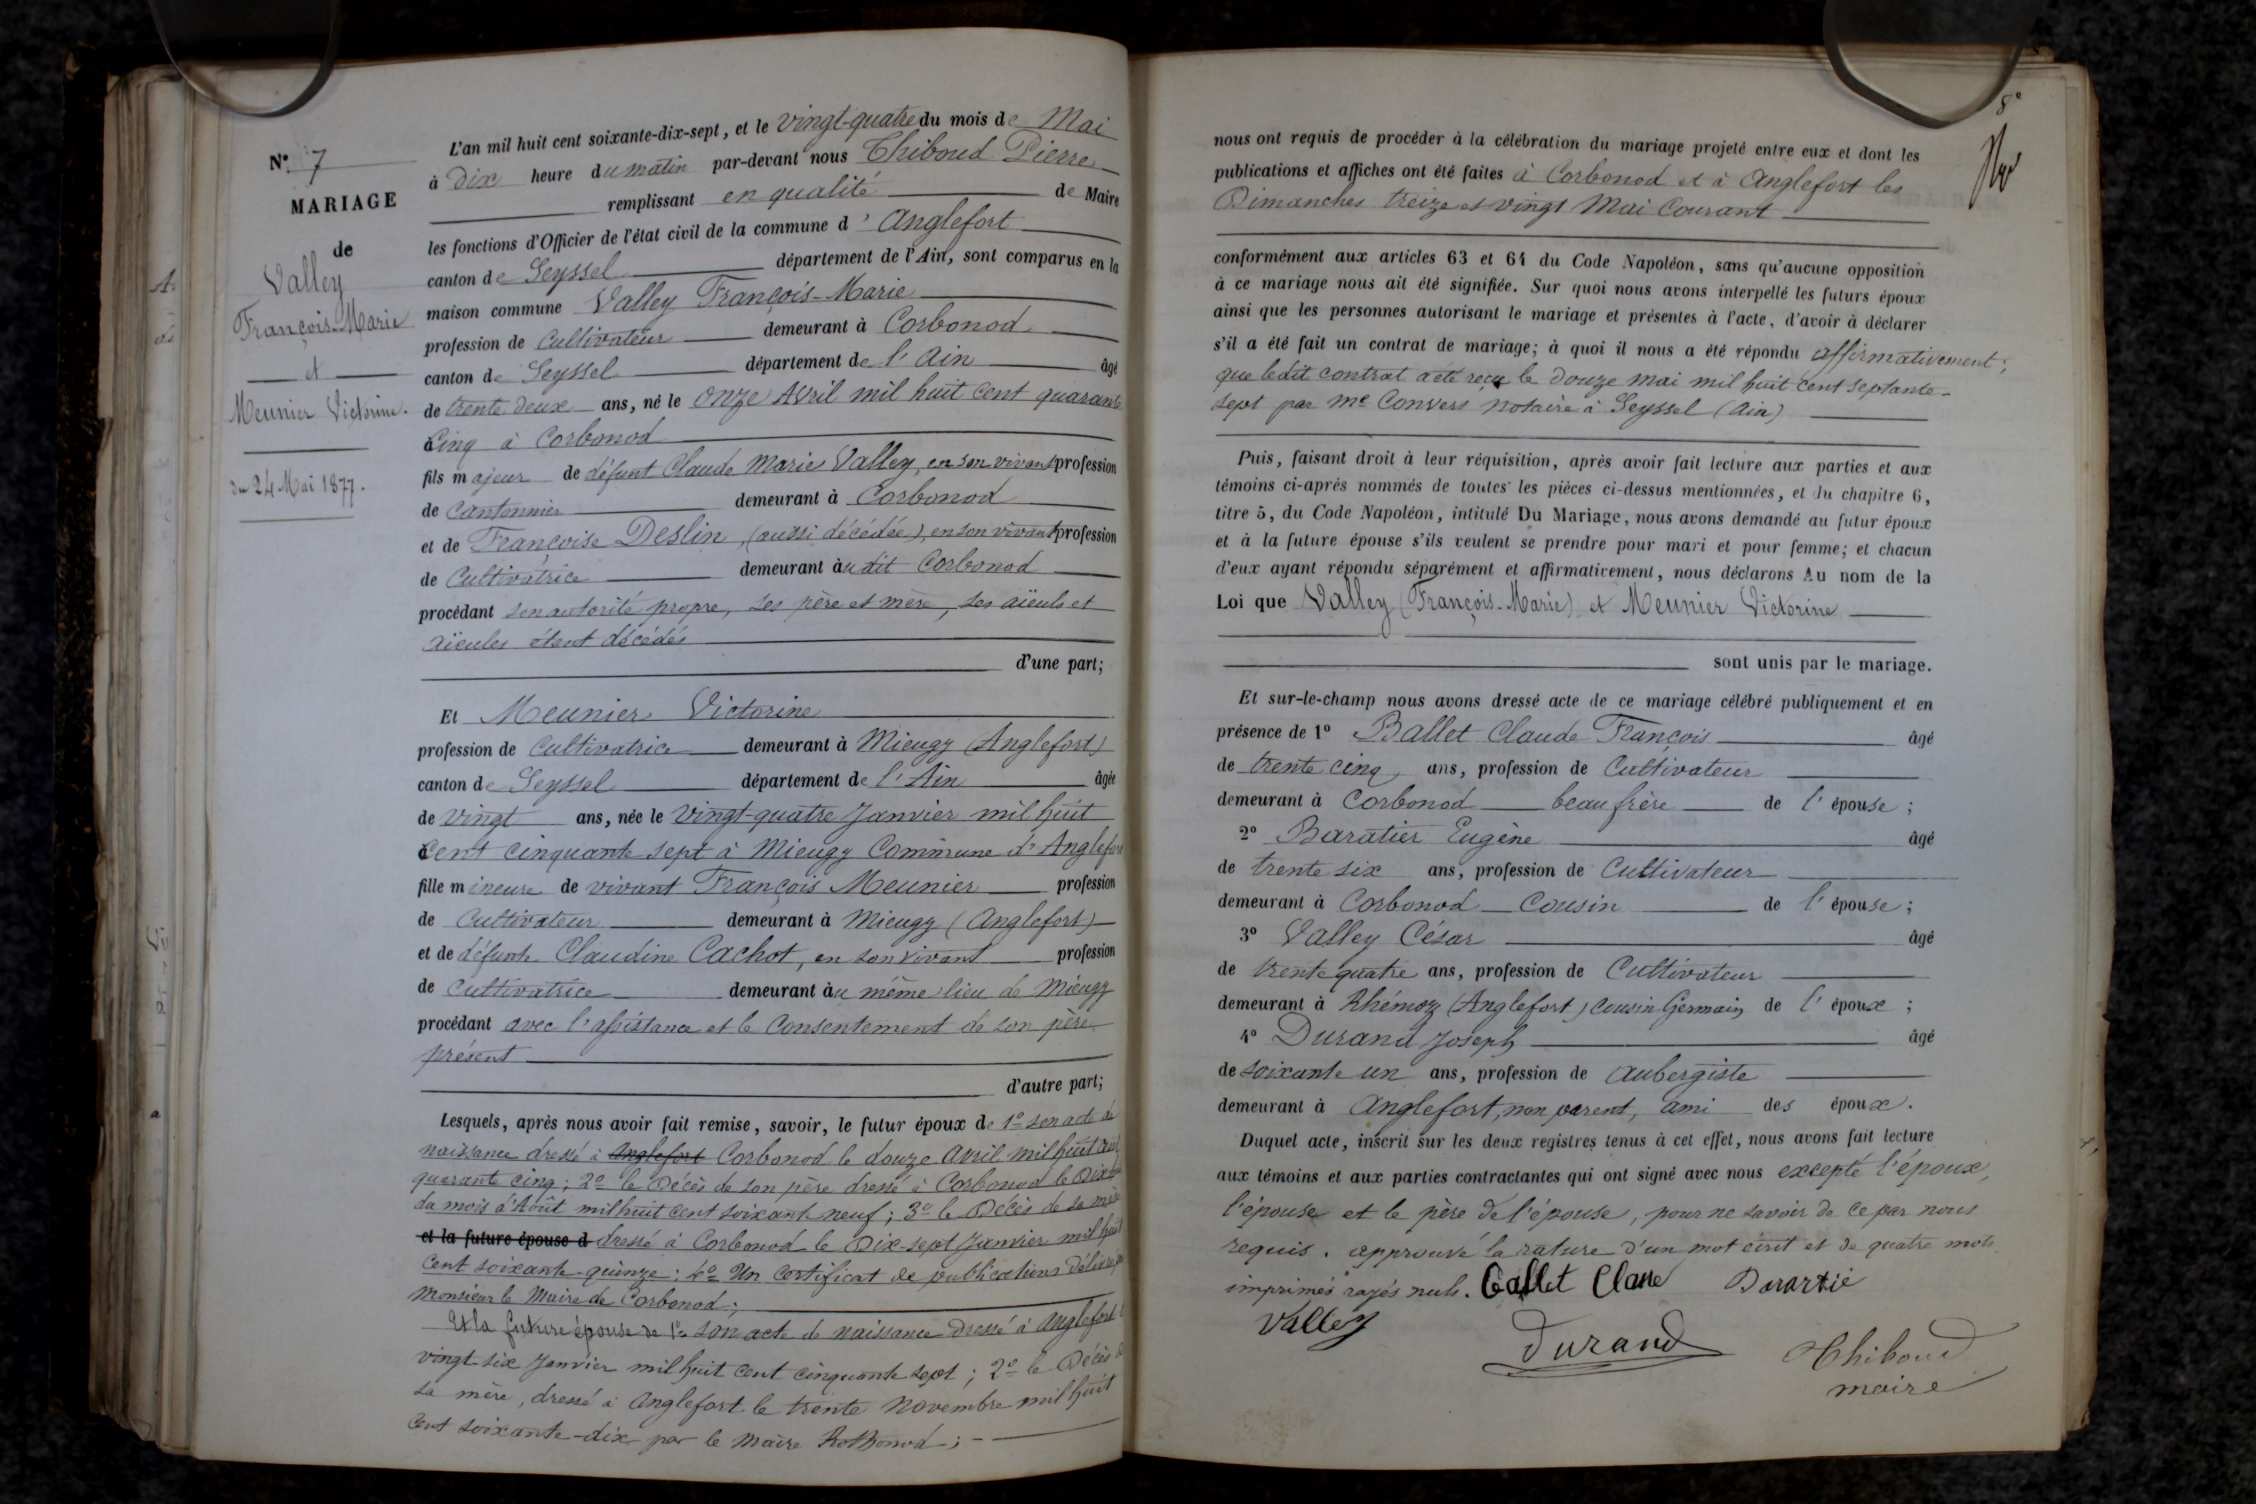 N° 7
MARIAGE
de
Valley
François-Marie
et
Meunier Victorine.
du 24 Mai 1877.
L'an mil huit cent soixante-dix-sept, et le vingt-quatre du mois de Mai
à Dix heure du matin par-devant nous Thiboud Pierre
remplissant en qualité de Maire
les fonctions d'Officier de l'état civil de la commune d'Anglefort
canton de Seyssel département de l'Ain, sont comparus en la
maison commune Valley François-Marie
profession de Cultivateur demeurant à Corbonod
canton de Seyssel département de l'Ain âgé
de trente deux ans, né le onze Avril mil huit cent quarante
Cinq à Corbonod
fils majeur de défunt Claude Marie Valley, en son vivant profession
de Cantonnier demeurant à Corbonod
et de Françoise Deslin, (aussi décédée), en son vivant profession
de Cultivatrice demeurant au dit Corbonod
procédant son autorité propre, ses père et mère, ses aïeuls et
aïeules étant décédés
d'une part;
Et Meunier Victorine
profession de Cultivatrice demeurant à Mieugy (Anglefort)
canton de Seyssel département de l'Ain âgée
de vingt ans, née le vingt-quatre Janvier mil huit
Cent cinquante sept à Mieugy Commune d'Anglefort
fille mineure de vivant François Meunier profession
de Cultivateur demeurant à Mieugy (Anglefort)
et de défunte Claudine Cachot, en son vivant profession
de Cultivatrice demeurant au même lieu de Mieugy
procédant avec l'assistance et le Consentement de son père
présent
d'autre part;
Lesquels, après nous avoir fait remise, savoir, le futur époux de 1° son acte de
naissance dressé à Anglefort Corbonod le douze Avril mil huit cent
quarante cinq; 2° le Décès de son père dressé à Corbonod le Dix
du mois d'Août mil huit cent soixante neuf; 3° le Décès de sa mère
et la future épouse d dressé à Corbonod le Dix-sept Janvier mil huit
Cent soixante-quinze; 4° Un Certificat de publications délivré par
Monsieur le Maire de Corbonod;
Et la future épouse de 1° son acte de naissance dressé à Anglefort le
vingt-six Janvier mil huit cent cinquante sept; 2° le Décès de
sa mère, dressé à Anglefort le trente Novembre mil huit
Cent soixante-dix par le Maire Rothonod;
8°
nous ont requis de procéder à la célébration du mariage projeté entre eux et dont les
publications et affiches ont été faites à Corbonod et à Anglefort les
Dimanches treize et vingt Mai Courant
conformément aux articles 63 et 64 du Code Napoléon, sans qu'aucune opposition
à ce mariage nous ait été signifiée. Sur quoi nous avons interpellé les futurs époux
ainsi que les personnes autorisant le mariage et présentes à l'acte, d'avoir à déclarer
s'il a été fait un contrat de mariage; à quoi il nous a été répondu affirmativement;
que le dit contrat a été reçu le douze mai mil huit cent septante-
sept par Me Convers notaire à Seyssel (Ain)
Puis, faisant droit à leur réquisition, après avoir fait lecture aux parties et aux
témoins ci-après nommés de toutes les pièces ci-dessus mentionnées, et du chapitre 6,
titre 5, du Code Napoléon, intitulé Du Mariage, nous avons demandé au futur époux
et à la future épouse s'ils veulent se prendre pour mari et pour femme; et chacun
d'eux ayant répondu séparément et affirmativement, nous déclarons Au nom de la
Loi que Valley (François-Marie) et Meunier Victorine
sont unis par le mariage.
Et sur-le-champ nous avons dressé acte de ce mariage célébré publiquement et en
présence de 1° Ballet Claude François âgé
de trente cinq ans, profession de Cultivateur
demeurant à Corbonod beau frère de l'épouse;
2° Baratier Eugène âgé
de trente six ans, profession de Cultivateur
demeurant à Corbonod Cousin de l'épouse;
3° Valley César âgé
de trente quatre ans, profession de Cultivateur
demeurant à Rhémoz (Anglefort) cousin Germain de l'époux;
4° Durand Joseph âgé
de soixante un ans, profession de Aubergiste
demeurant à Anglefort, non parent, ami des époux.
Duquel acte, inscrit sur les deux registres tenus à cet effet, nous avons fait lecture
aux témoins et aux parties contractantes qui ont signé avec nous excepté l'époux,
l'épouse et le père de l'épouse, pour ne savoir de ce par nous
requis. approuvé la rature d'un mot écrit et de quatre mots
imprimés rayés nuls.
Valley
Durand
Thiboud
maire